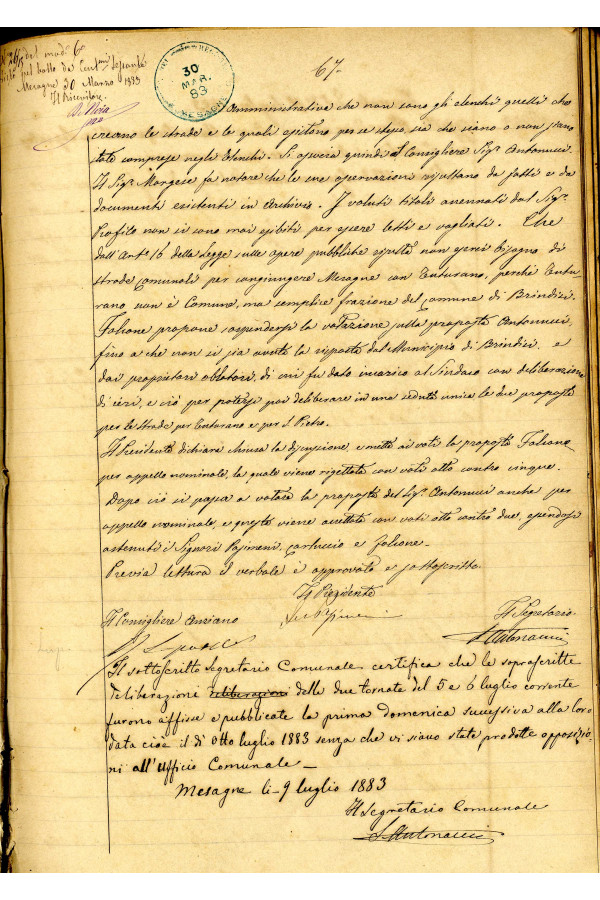 del mod. 6°
pel bollo de Centesimi Sessanta
Mesagne 30 Marzo 1883
Il Ricevitore
67.
30
MAR.
83
MESAGNE
Amministrativa che non sono gli elenchi quelli che
creano le strade e le quali esistono per se stesse, sia che siano o non siano
state comprese negli Elenchi. Si associa quindi al Consigliere Sigr. Antonucci.
Il Sigr. Morgese fa notare che le sue osservazioni risultano da fatti e da
documenti esistenti in Archivio. I voluti titoli accennati dal Sigr.
Profilo non si sono mai esibiti per essere letti e vagliati. Che
dall'Art. 16 della legge sulle opere pubbliche non bisogno di
strade comunali per congiungere Mesagne con Tuturano, perchè Tutu-
rano non è Comune, ma semplice frazione del Comune di Brindisi.
Falcone propone sospendersi la votazione sulla proposta Antonucci,
fino a che non si sia avuta la risposta dal Municipio di Brindisi, e
dai proprietari oblatori, di cui fu dato incarico al Sindaco con deliberazione
di ieri, e ciò per potersi poi deliberare in una seduta unica le due proposte
per le strade per Tuturano e per S. Pietro.
Il Presidente dichiara chiusa la discussione, e mette ai voti la proposta Falcone
per appello nominale, la quale viene rigettata con voti otto contro cinque.
Dopo ciò si passa a votare la proposta del Sigr. Antonucci anche per
appello nominale, e questa viene accettata con voti otto contro due, essendosi
astenuti i Signori Carluccio e Falcone.
Previa lettura il verbale è approvato e sottoscritto.
Il Presidente
Il Consigliere Anziano
Il Segretario
Il sottoscritto Segretario Comunale certifica che le soprascritte
deliberazione deliberazioni delle due tornate del 5 e 6 luglio corrente
furono affisse e pubblicate la prima domenica successiva alla loro
data cioè il dì otto luglio 1883 senza che vi siano state prodotte opposizio-
ni all'Ufficio Comunale _
Mesagne li 9 luglio 1883
Il Segretario Comunale
S Antonucci